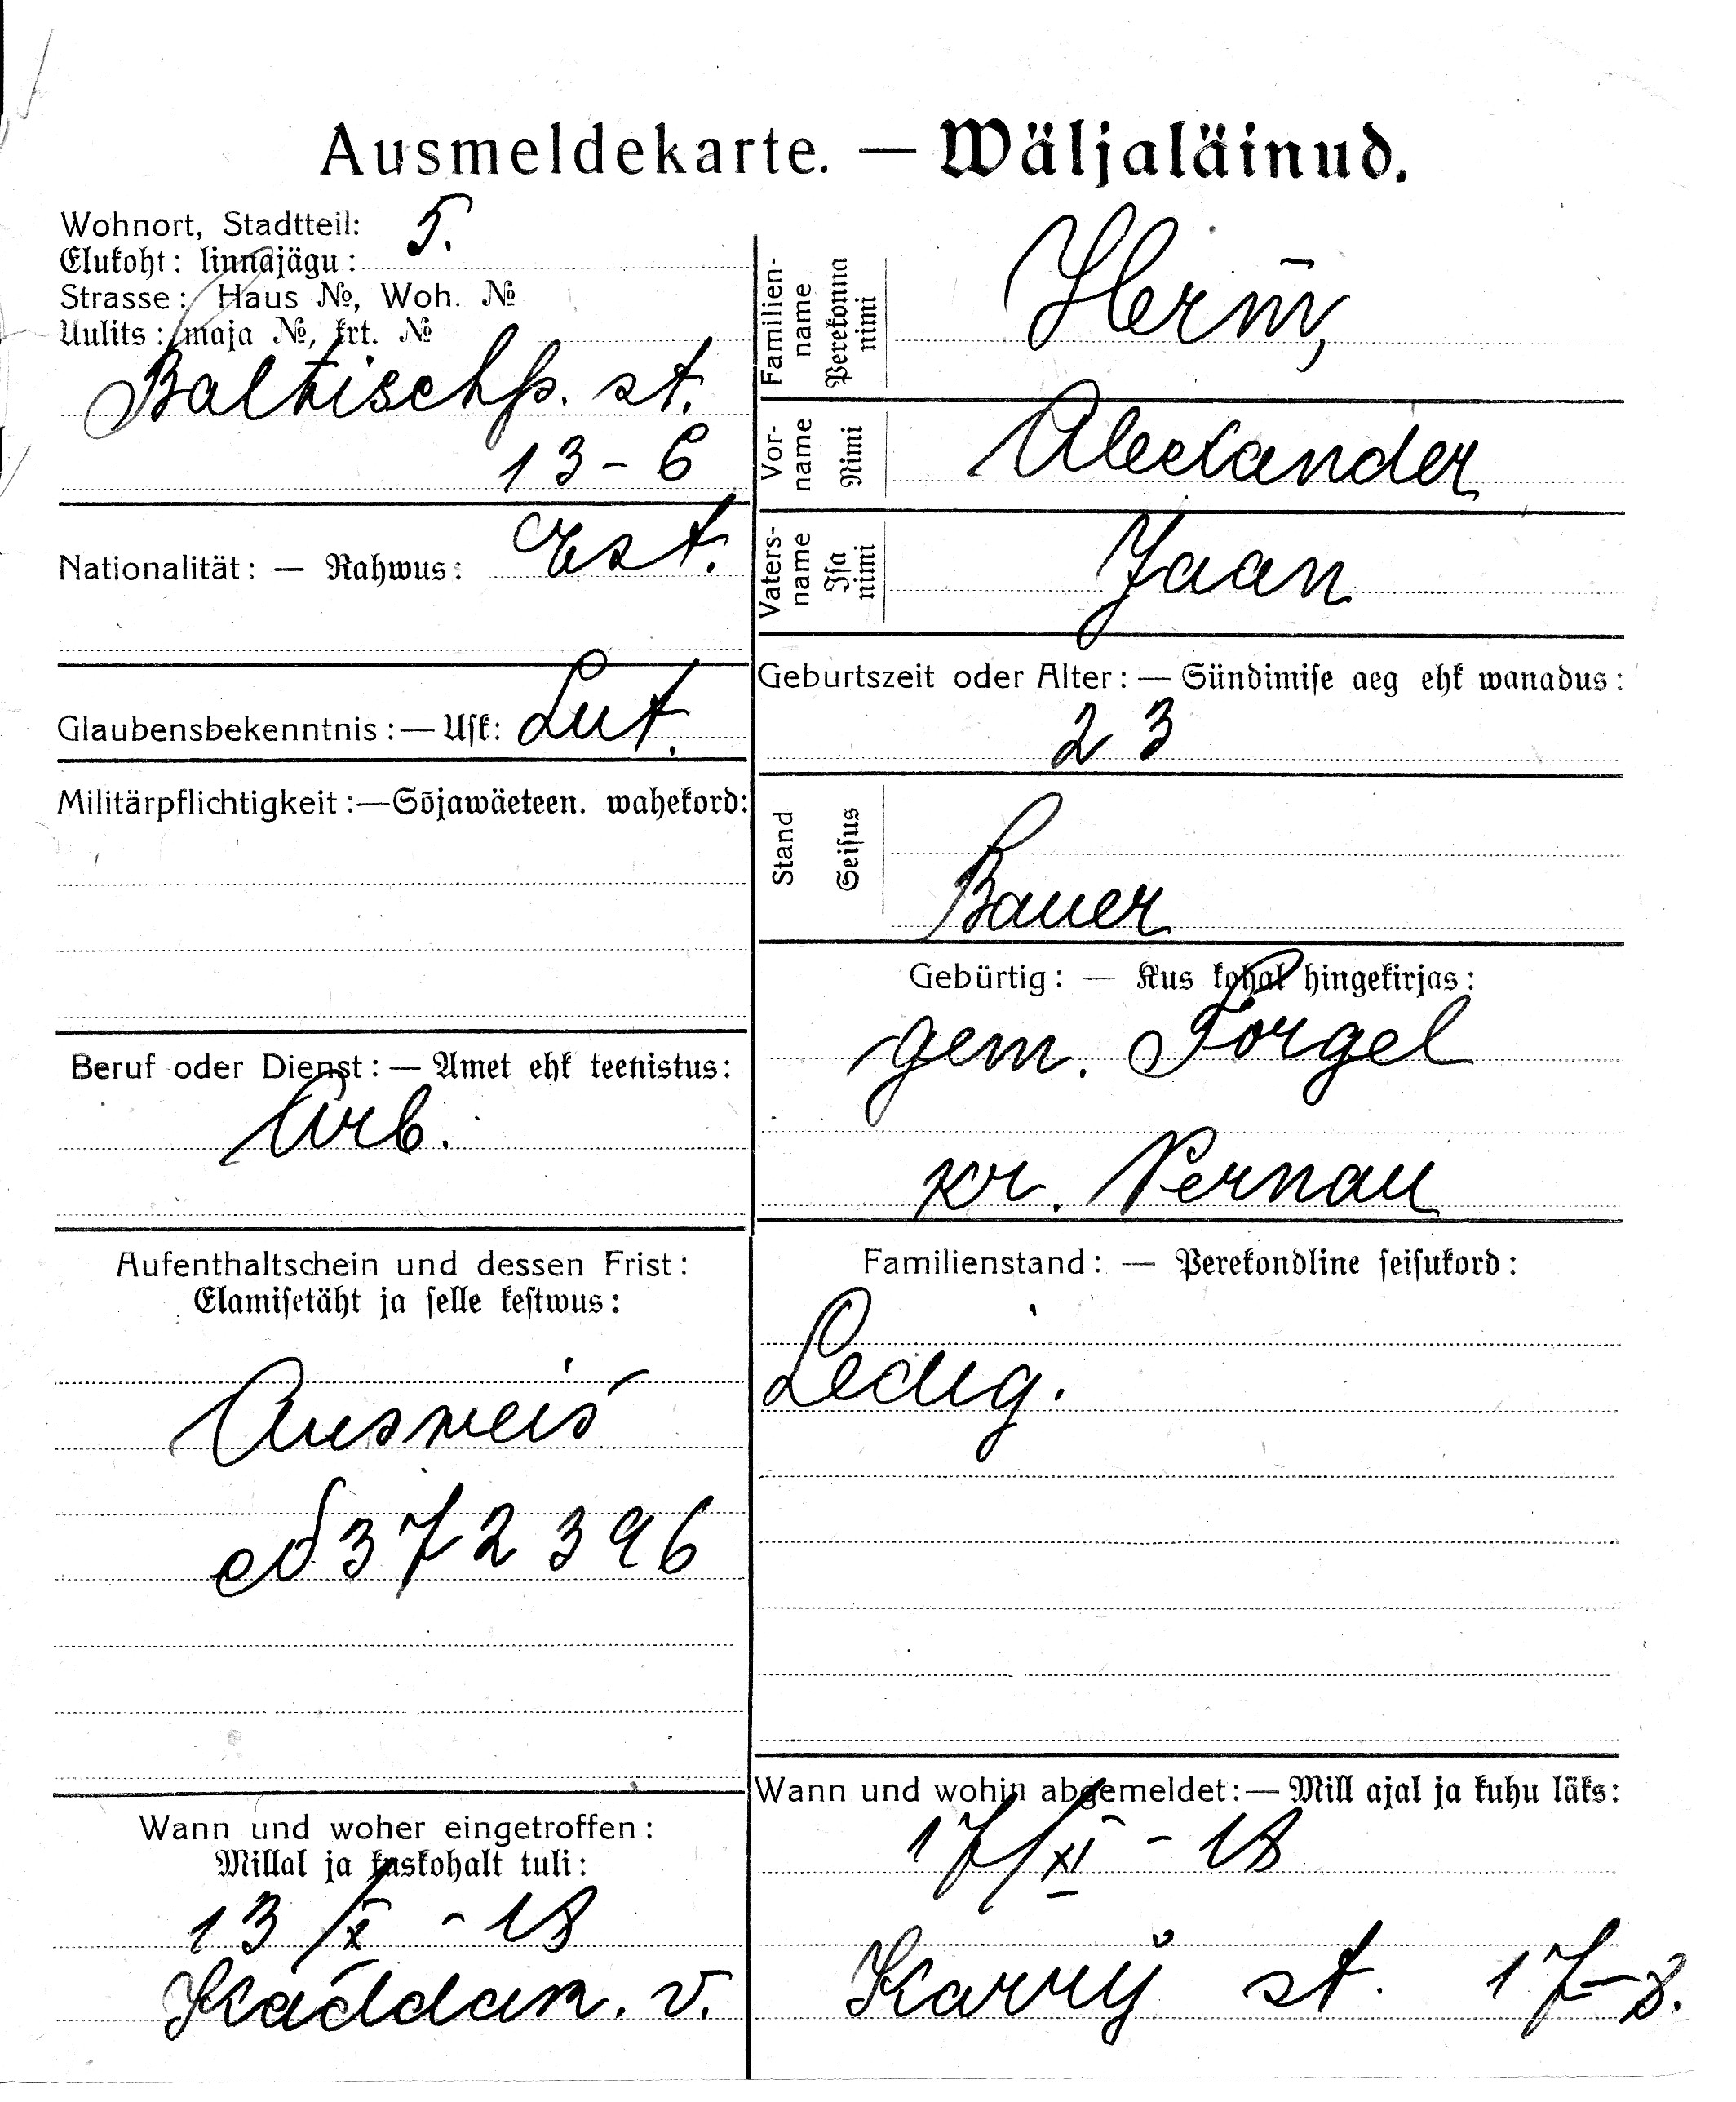 Ausmeldekarte. — Wäljaläinud.
Wohnort, Stadtteil: 5.
Elukoht: linnajägu:
Strasse: Haus №, Woh. №
Uulits: maja №, krt. №
Baltischp. st.
13 - 6
Nationalität: — Rahwus: Est.
Glaubensbekenntnis: — Usk: Lut.
Militärpflichtigkeit: — Sõjawäeteen. wahekord:
Beruf oder Dienst: — Amet ehk teenistus:
Arb.
Aufenthaltschein und dessen Frist:
Elamisetäht ja selle kestwus:
Ausweis
372396
Wann und woher eingetroffen:
Millal ja kuskohalt tuli:
13/X - 18
v.
Familien-name Perekonna nimi
Herm,
Vor-name Nimi
Alexander
Vaters-name Isa nimi
Jaan
Geburtszeit oder Alter: — Sündimise aeg ehk wanadus:
23
Stand Seisus
Bauer
Gebürtig: — Kus kohal hingekirjas:
gem. Torgel
kr. Pernau
Familienstand: — Perekondline seisukord:
Ledig.
Wann und wohin abgemeldet: — Mill ajal ja kuhu läks:
17/XI - 18
st. 17-8.